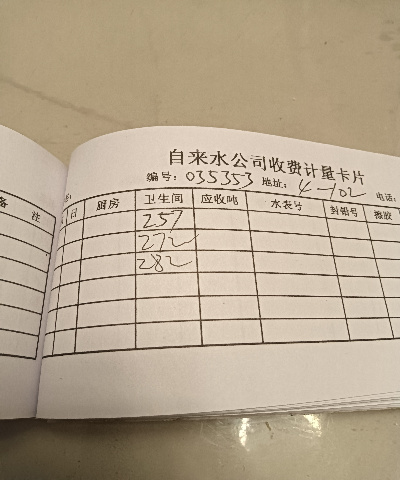 自来水公司收费计量卡片
编号: 035353 地址: 4-102 电话:
备 注
日 厨房 卫生间 应收吨 水表号 封铅号
257
272
282